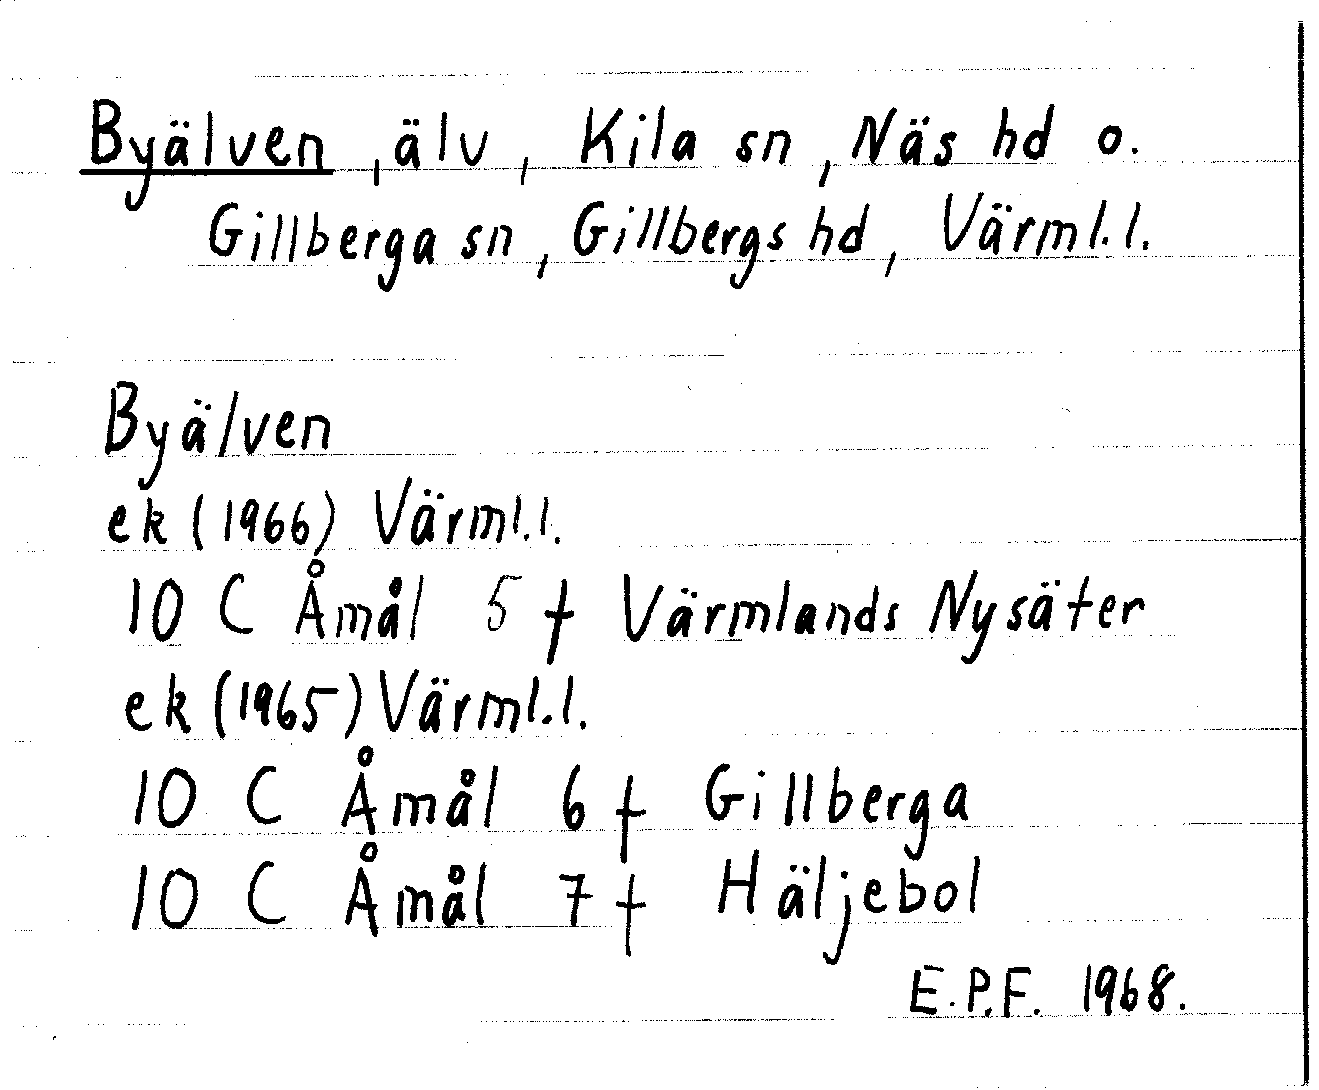 Byälven, älv, Kila sn, Näs hd o.
Gillberga sn, Gillbergs hd, Värml.l.
Byälven
ek (1966) Värml.l.
10 C Åmål 5 f Värmlands Nysäter
ek (1965) Värml.l.
10 C Åmål 6 f Gillberga
10 C Åmål 7 f Häljebol
E.P.F. 1968.